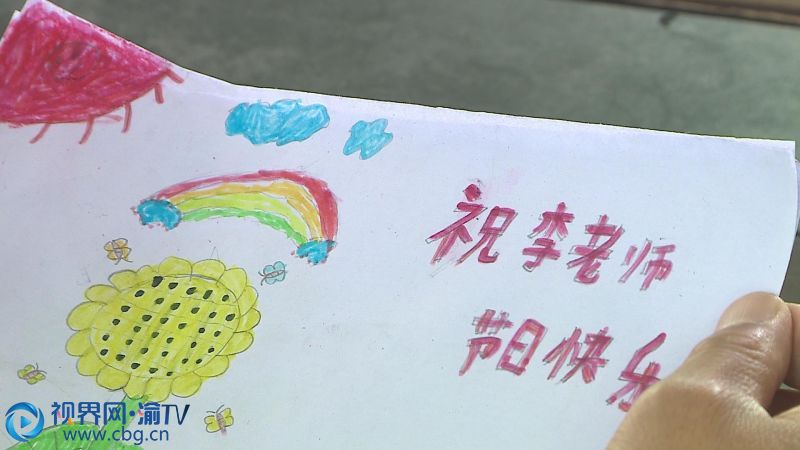 祝李老师
节日快乐
视界网·渝TV
www.cbg.cn